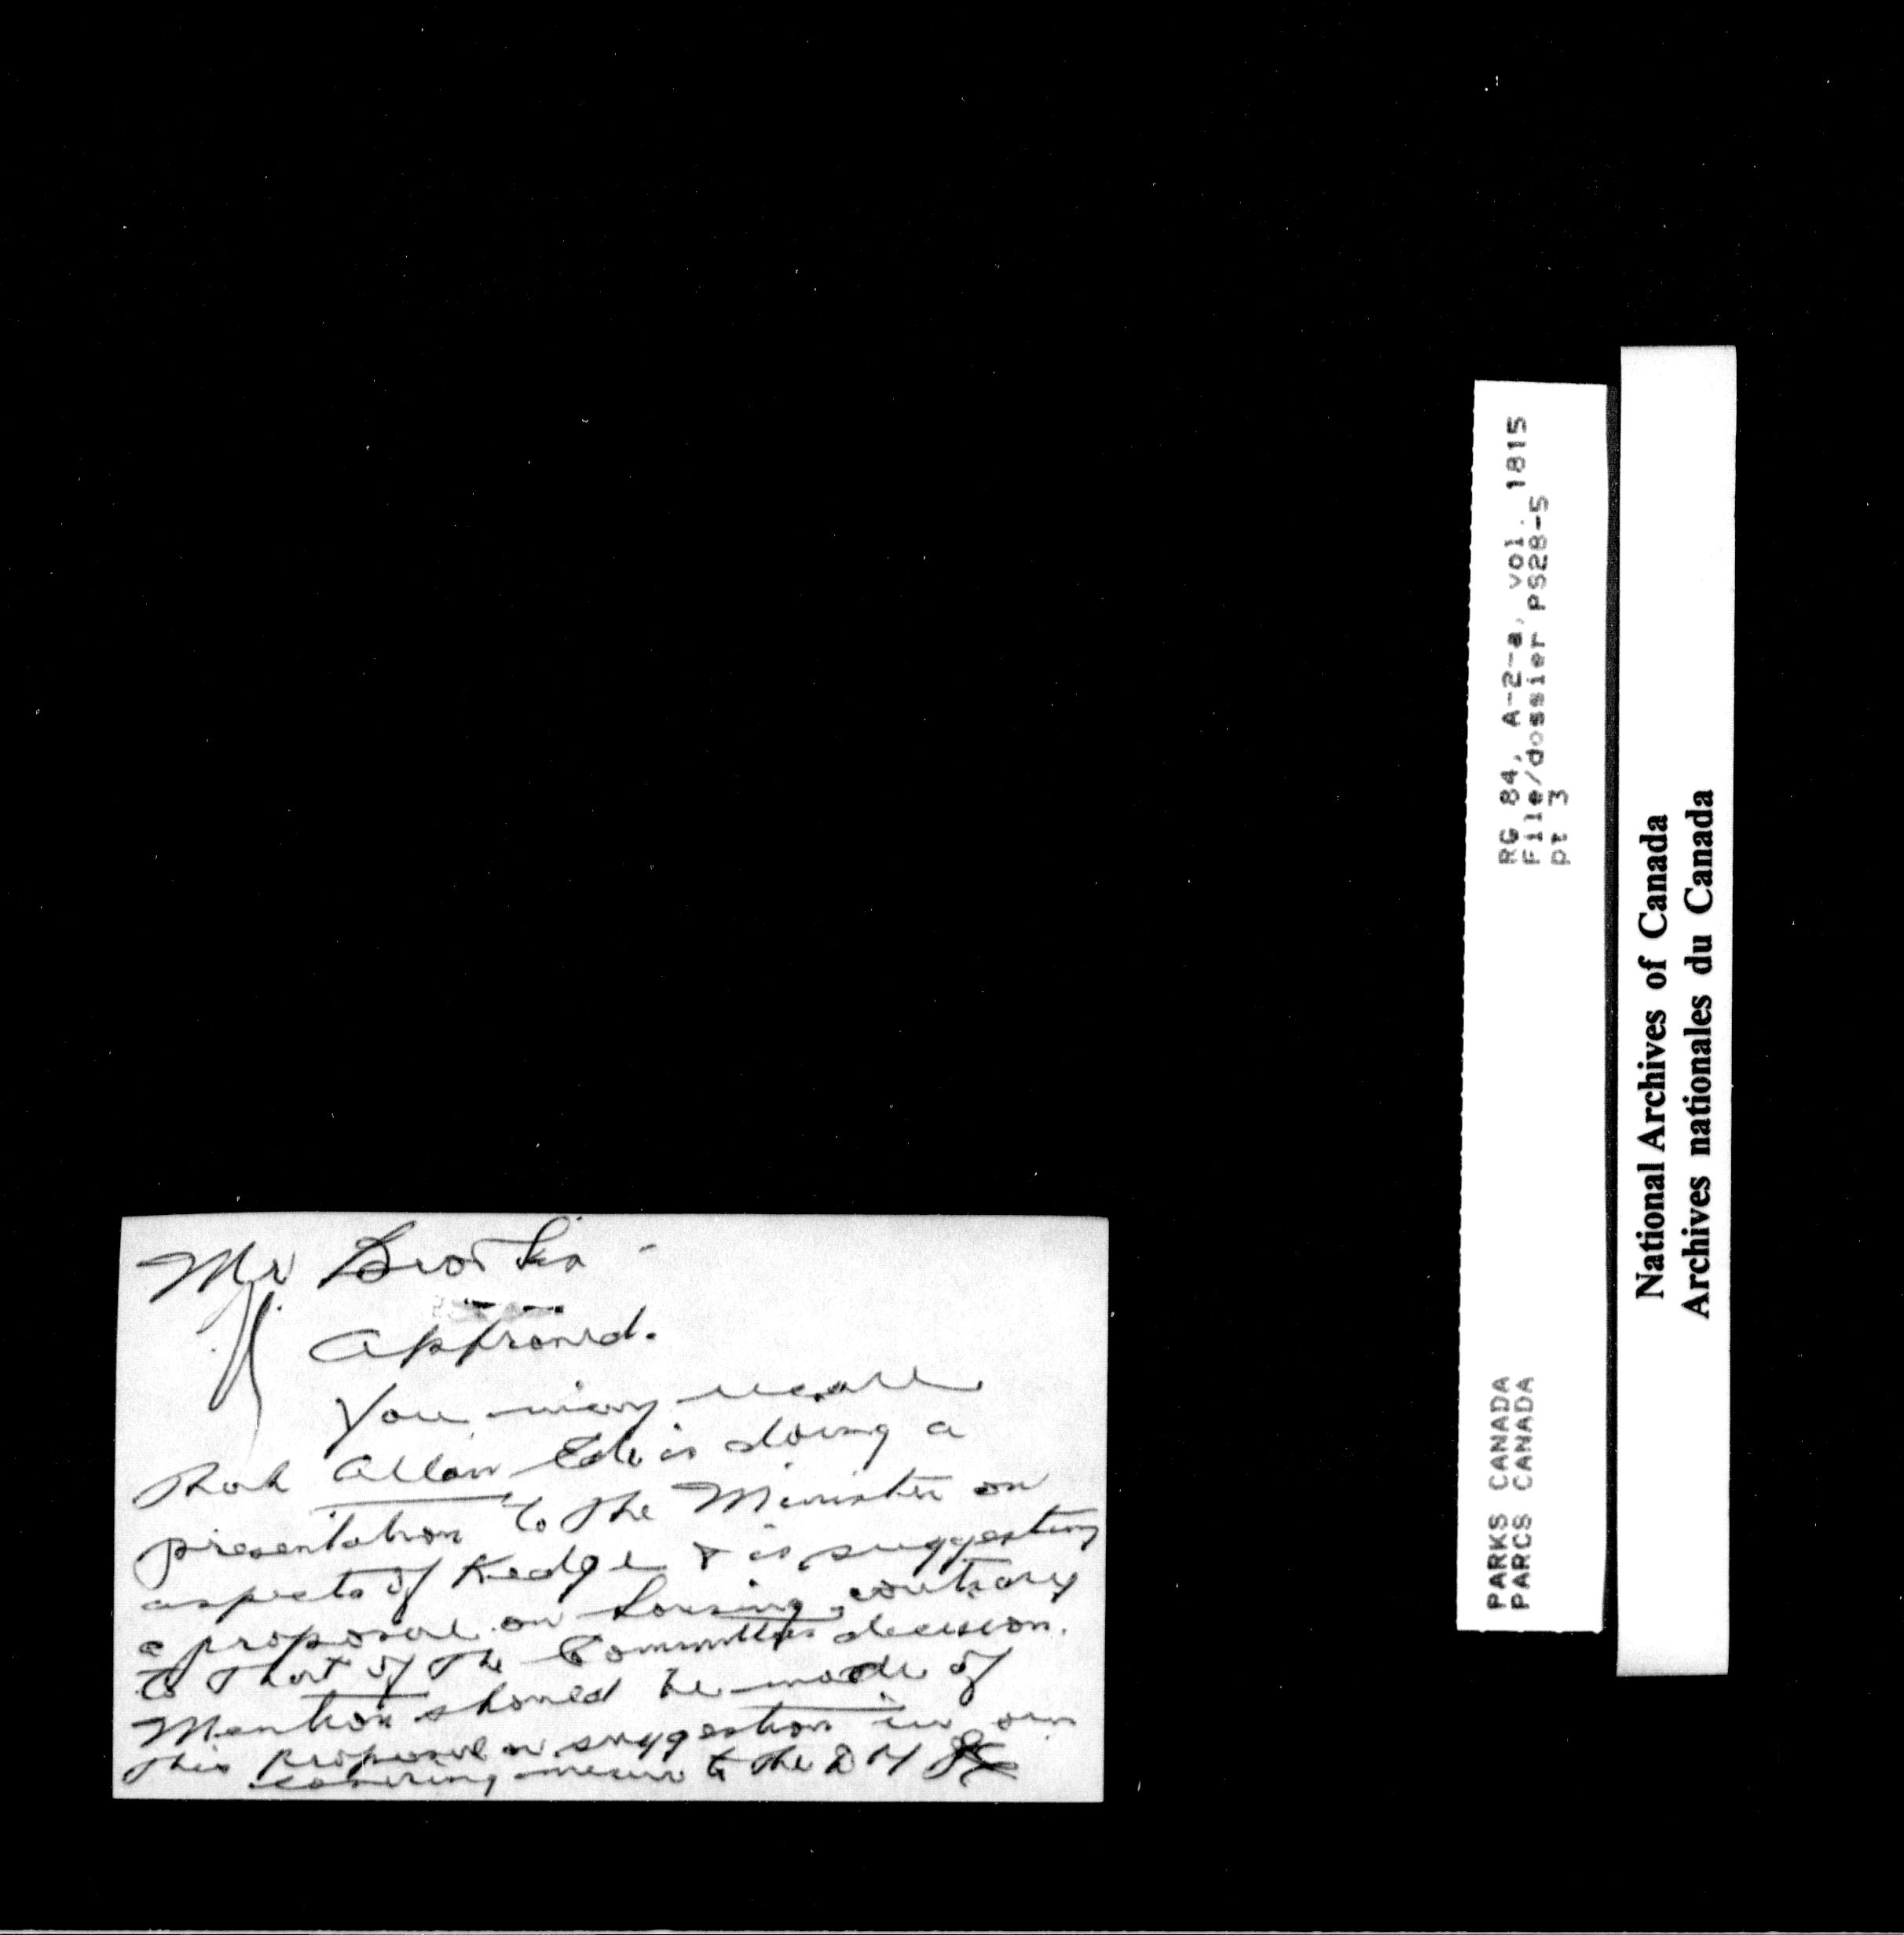 Mr Brooks -
Approved.
You may recall
that Allan Ede is doing a
presentation to the Minister on
aspects of Kedge & is suggesting
a proposal on housing, contrary
to that of the Committees decision.
Mention should be made of
this proposal or suggestion in our
covering memo to the DM
RG 84, A-2-a, vol. 1815
File/dossier PS28-5
pt 3
PARKS CANADA
PARCS CANADA
National Archives of Canada
Archives nationales du Canada